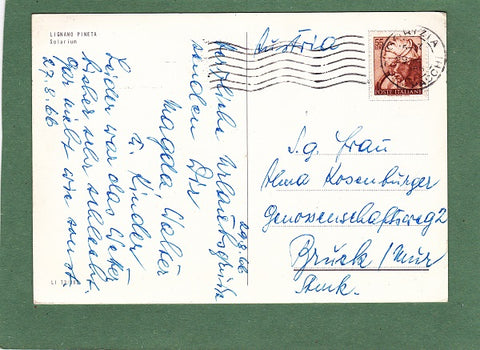 LIGNANO PINETA
Solarium
Austria
POSTE ITALIANE
29.8.66
Herzliche Urlaubsgrüße
senden Dir
Magda, Walter
u. Kinder
Leider war das Wetter
bisher sehr schlecht.
Gar nicht wie sonst
27.8.66
S.g. Frau
Alma Rosenburger
Genossenschaftsweg 2
Bruck/Mur
Stmk.